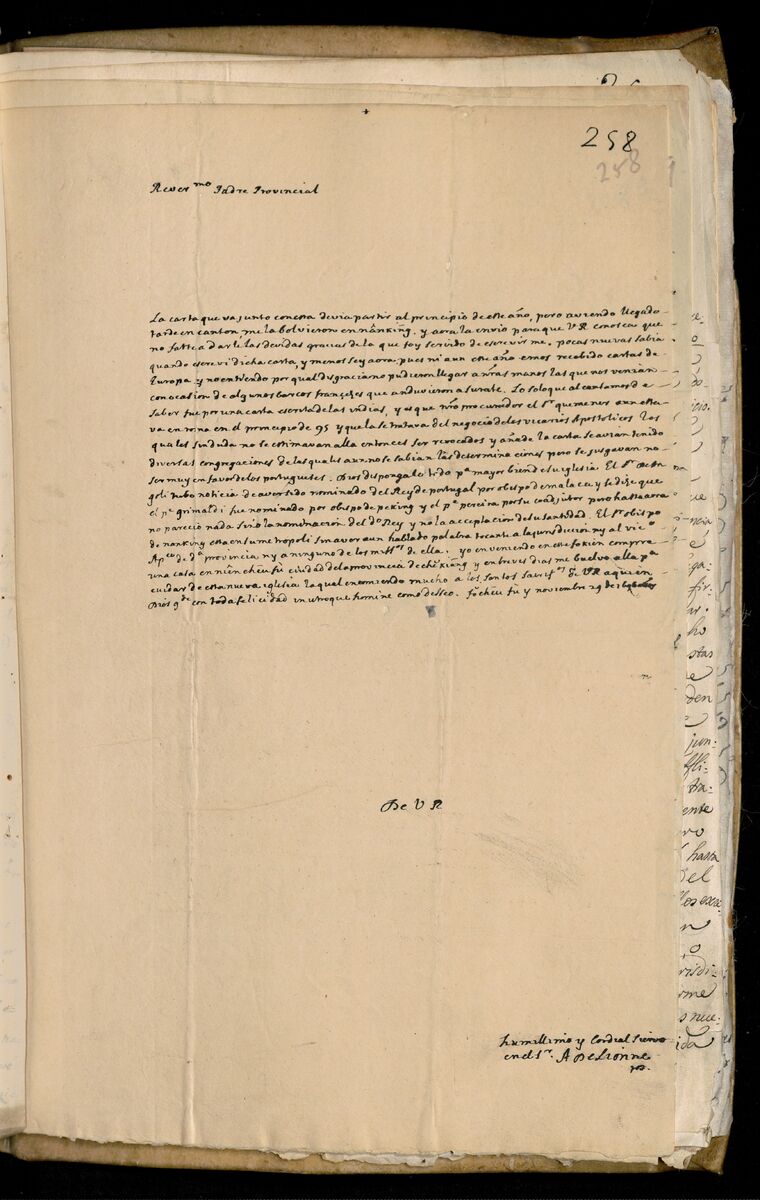 +
258
258
Rever.mo Padre Provincial
La carta que va junto con esta devia partir al principio de este año, pero aviendo llegado
tarde en canton, me la bolvieron en nânking. y aora la envio para que VR conosca que
no faltè a darle las devidas gracias de la que foy servido de escrevirme. pocas nuevas sabia
quando escreví dicha carta, y menos sey aora, pues ni aun este año emos recebido cartas de
Europa. y no entiendo por qual disgracia no pudieron llegar a nras manos las que nos venian
con ocasion de algunos barcos franceses que anduvieron a surate. Lo solo que alcansamos de
saber fue por una carta escrita de las indias, y es que nro procurador el Sr quemener aun esta
va en roma en el principio de 95 y que la se tratava del negocio de les vicarios Apostolicos los
quales sin duda no se estimavan alla entonces ser revocados y añade la carta se avian tenido
diversas congregaciones de las quales aun no se sabian las determinaciones pero se jusgavan no
ser muy en favor de los portugueses. Dios disponga le todo pa mayor bien de su iglesia. El Sr de Ar
goli tubo noticia de aver sido nominado del Rey de portugal por obispo de malaca y se dize que
el pe grimaldi fue nominado por obispo de peking y el pe pereira por su coadjutor pero hasta aora
no pareciò nada sino la nominacion del do Rey y no la acceptacion de su santidad. El sr obispo
de nanking esta en su metropoli sin aver aun hablado palabra tocante a la jurisdiccion ny al vico
Apco de da provincia ny a ninguno de los missres de ella. yo en veniendo en este fokien comprè
una casa en niên cheû fù ciudad de la provincia de che kiang y en breves dias me buelvo alla pa
cuidar de esta nueva iglesia la qual encomiendo mucho a los santos sacrifos de VR a quien
Dios gde con toda felicidad in utroque homine como deseo. focheu fu y noviembre 29 de
De V R
humillimo y Cordial siervo
en el Sr. A De Lionne